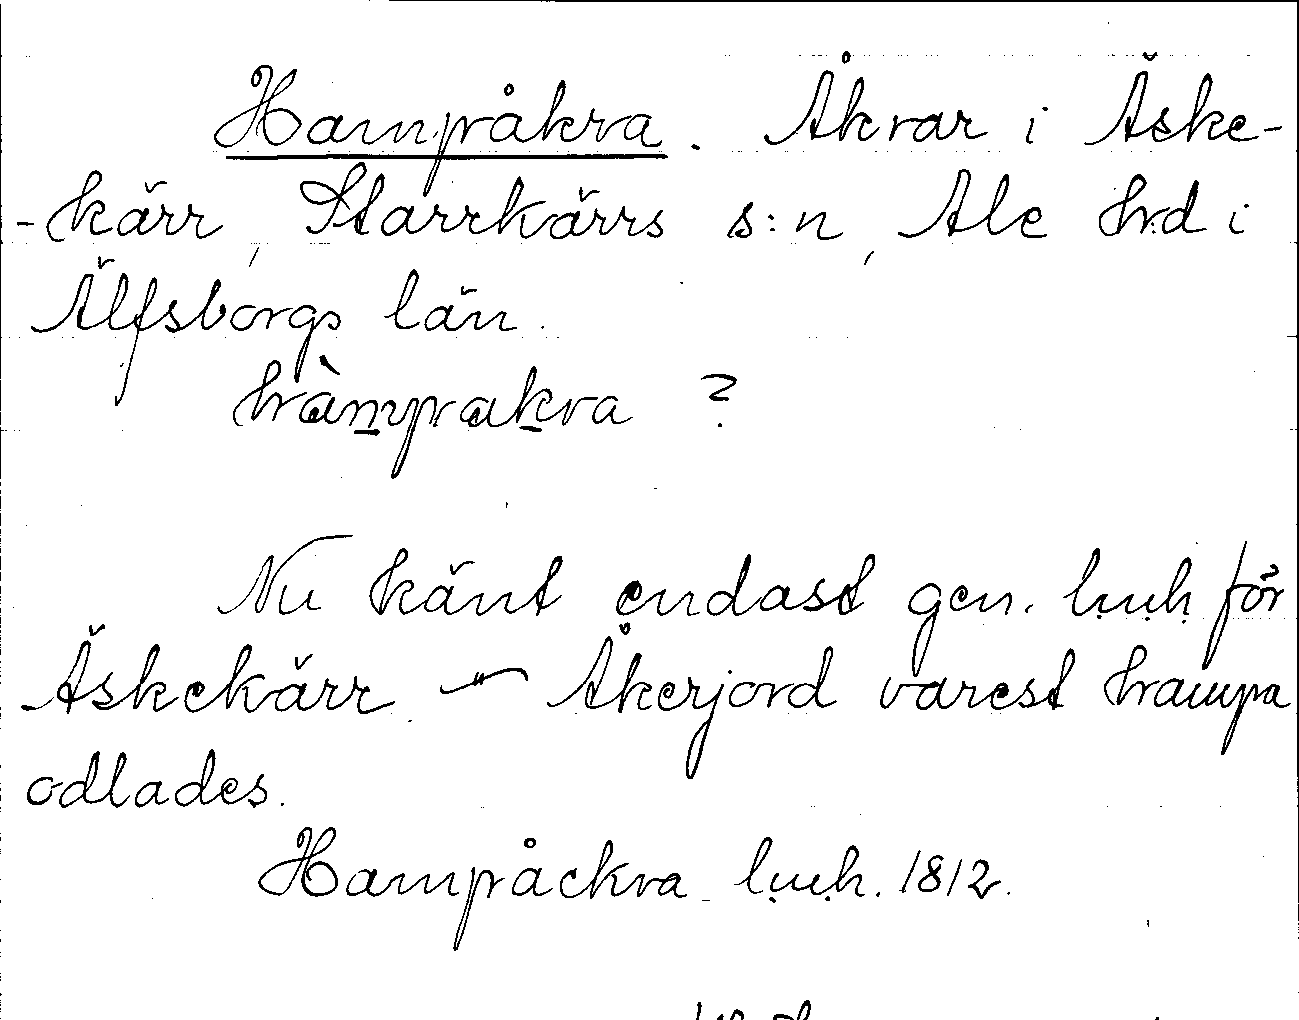 Hampåkra. Åkrar i Äske-
-kärr, Starrkärrs s:n, Ale hrd i
Älfsborgs län.
hàmpakra ?
Nu känt endast gen. l.m.h. för
Äskekärr – Åkerjord varest hampa
odlades.
Hampåckra l.m.h. 1812.